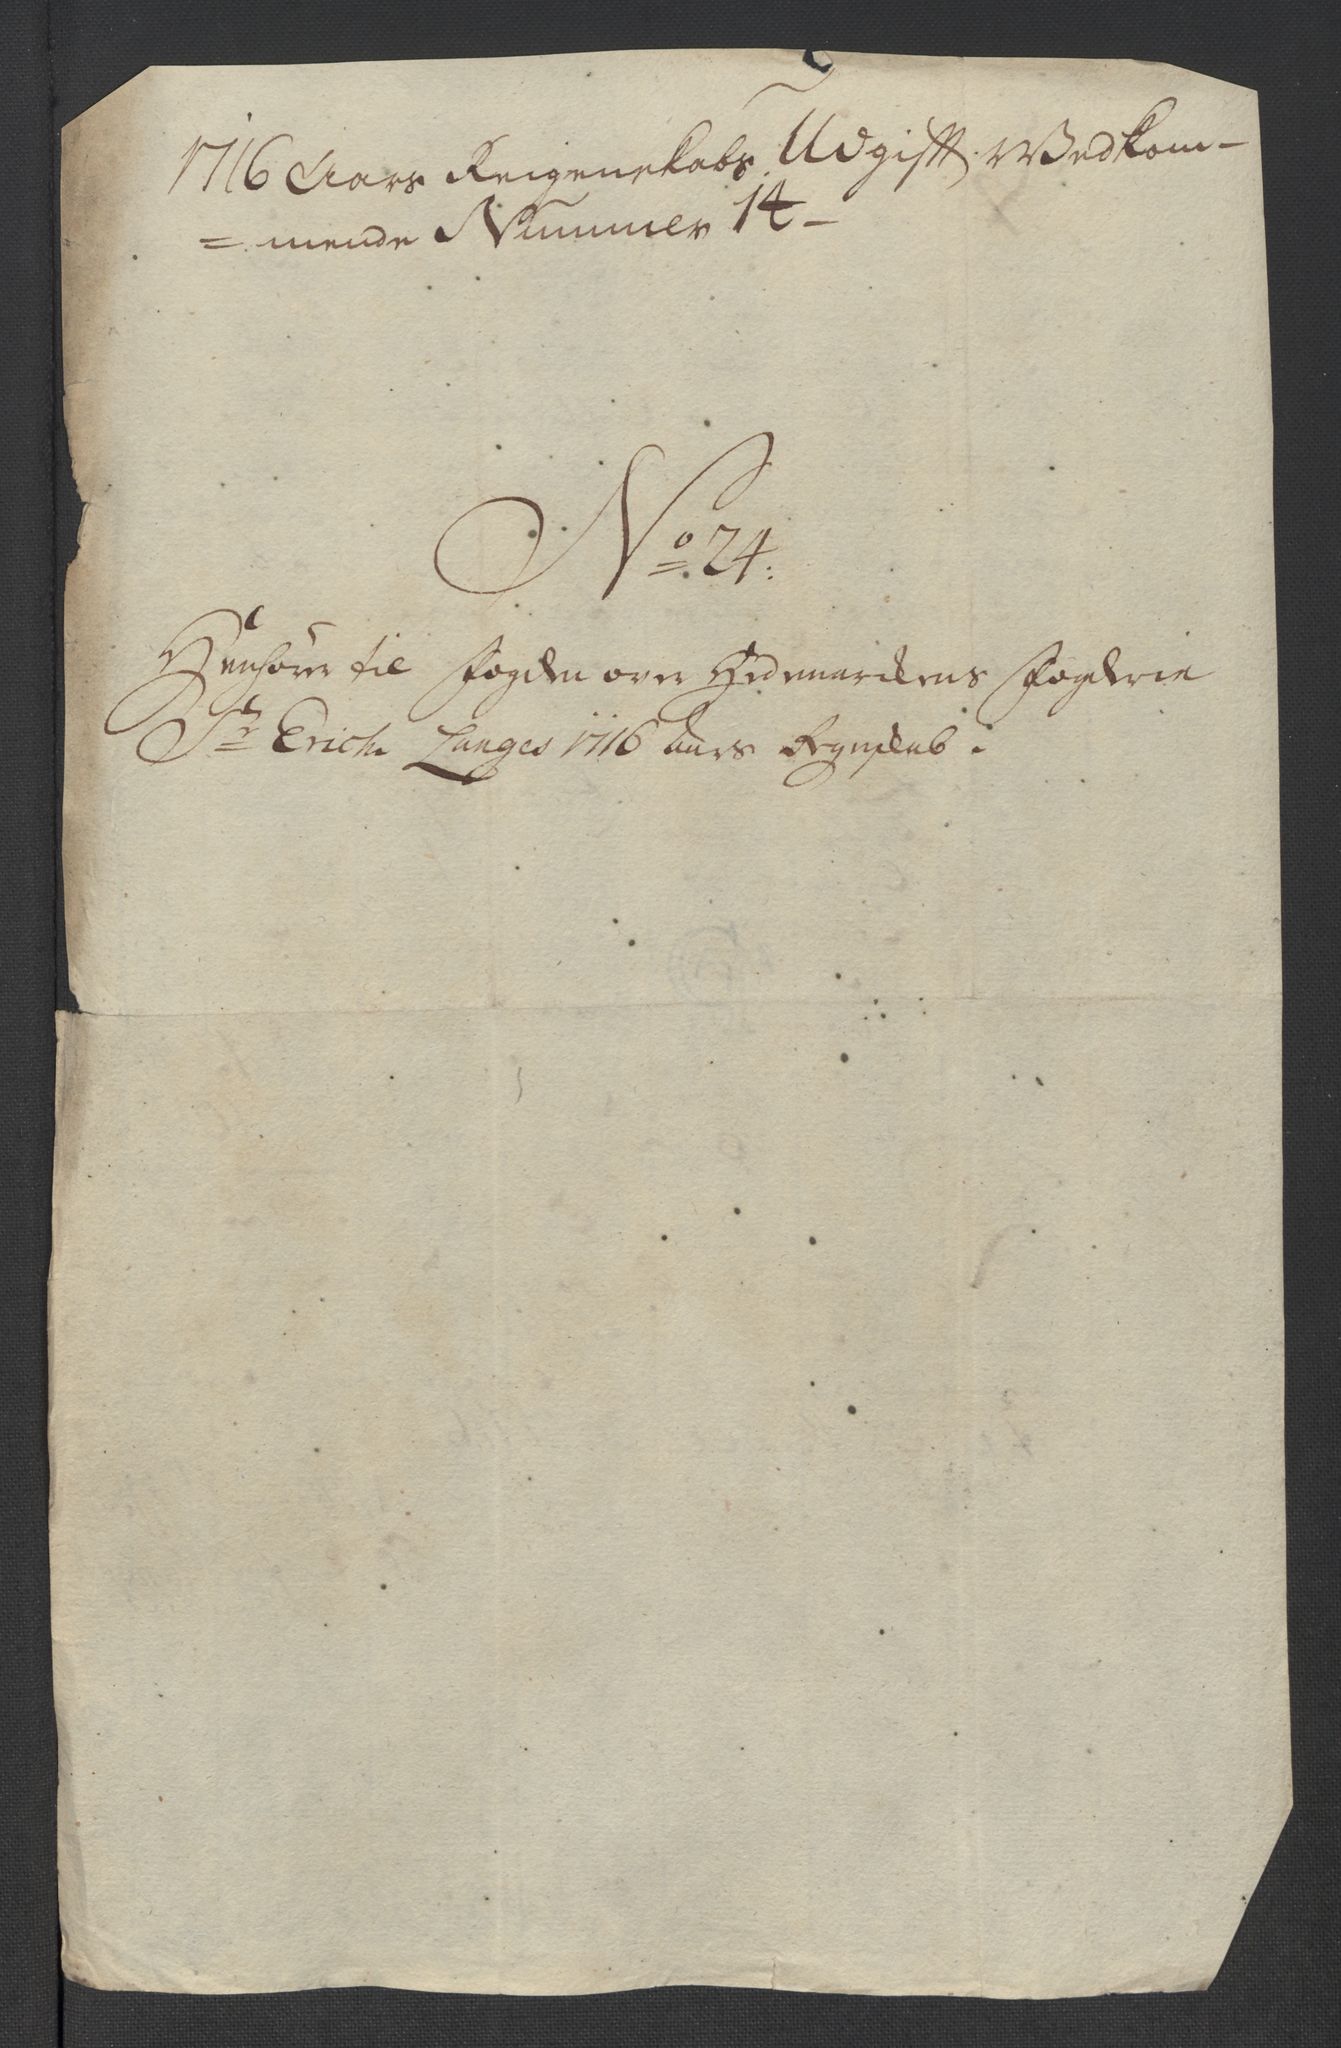 1716 Aars Reigenskabs Udgifft Wedkom-
= mende Nummer 14 -
No 24:
Henhører til fogden over Hedemarckens fogderie
Sr Erich Langes 1716 aars Regnskab.